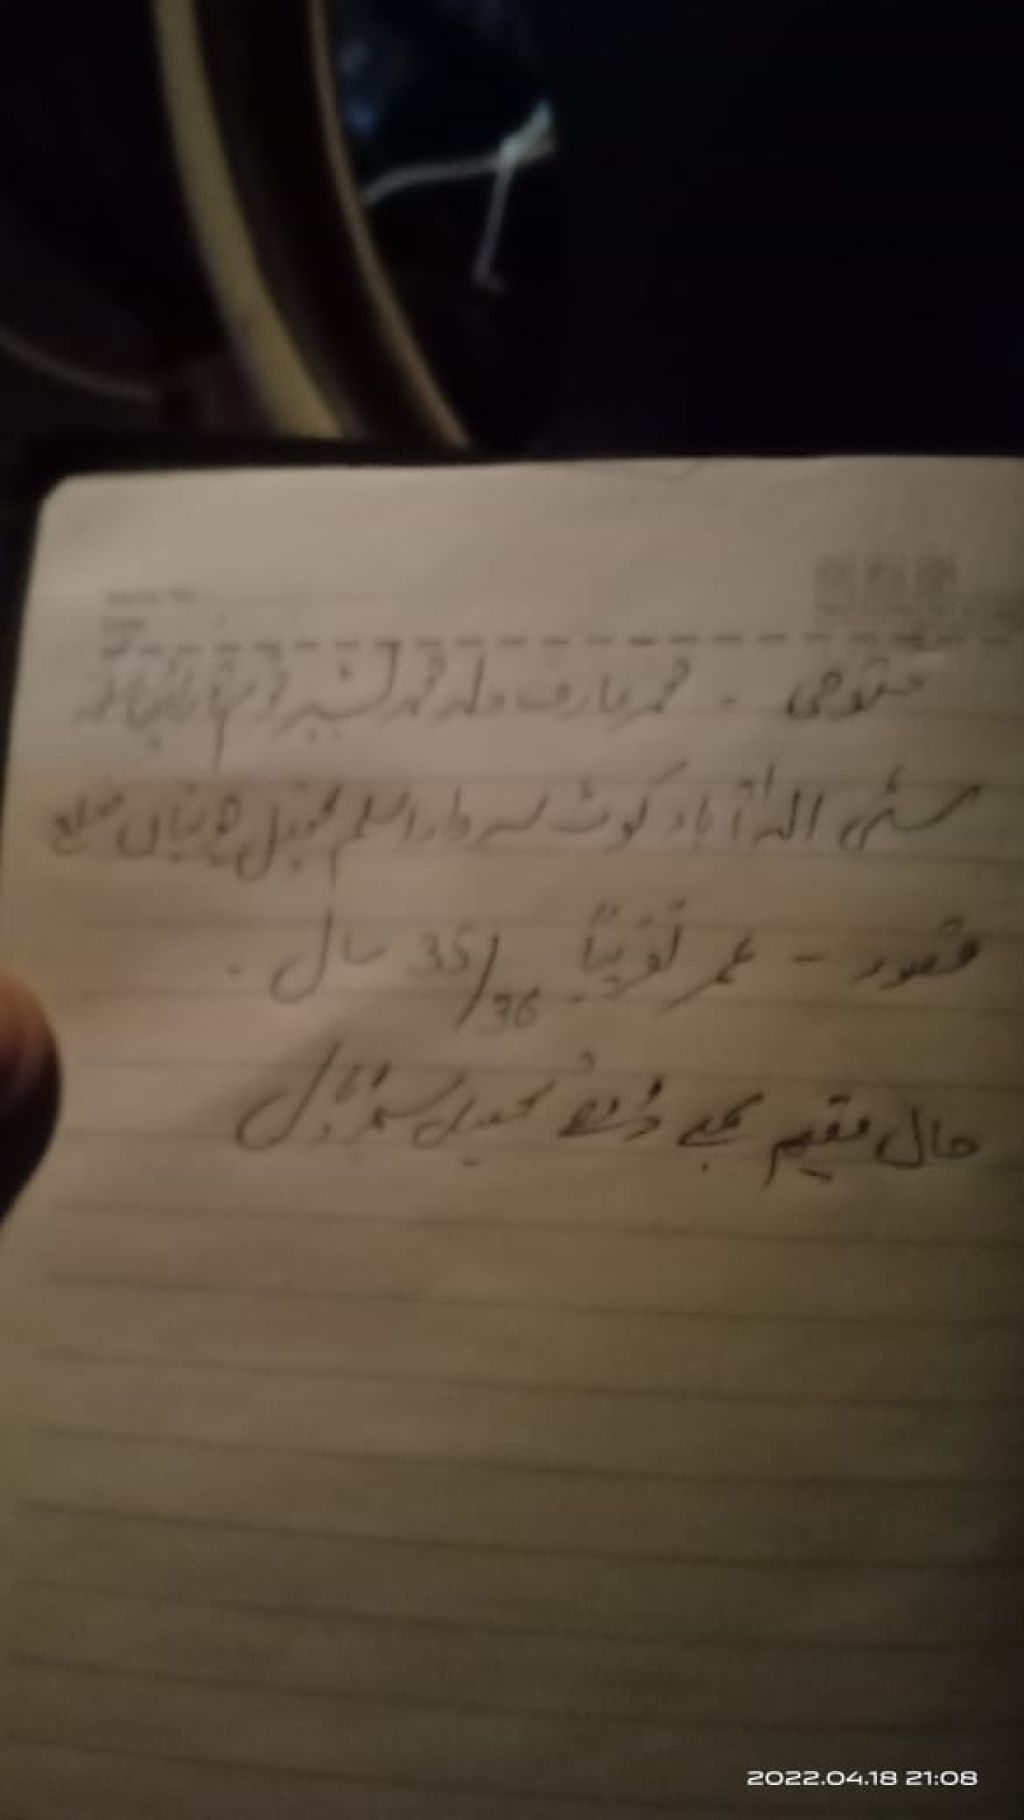 متوفی - محمد عارف ولد محمد بشیر قوم
سٹی الہ آباد کوٹ سردار اسلم تحصیل چونیاں ضلع
قصور - عمر تقریباً 35/36 سال -
حال مقیم تحصیل
2022.04.18 21:08